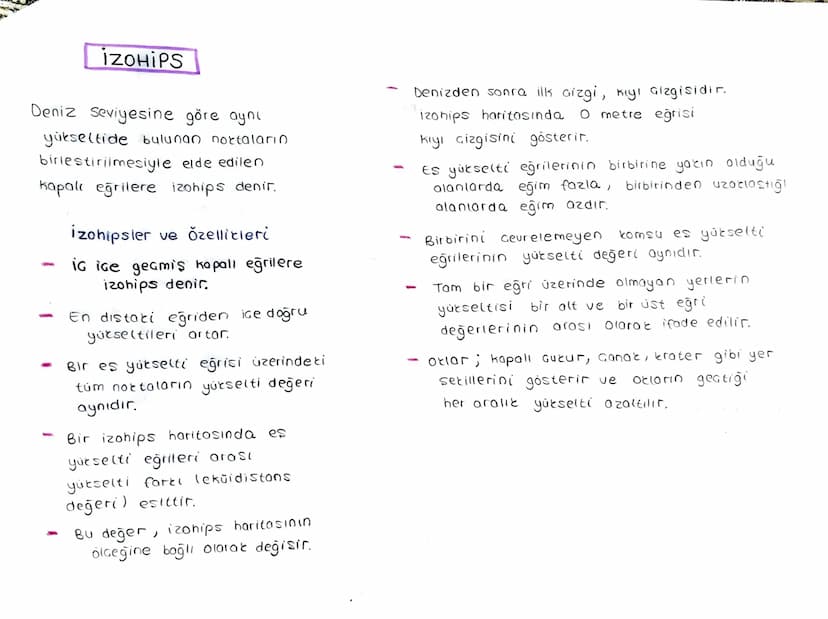 İZOHİPS
Deniz seviyesine göre aynı
yükseltide bulunan noktaların
birleştirilmesiyle elde edilen
kapalı eğrilere izohips denir.
İzohipsler ve Özellikleri
- İç içe geçmiş kapalı eğrilere
izohips denir.
- En dıştaki eğriden içe doğru
yükseltileri artar.
- Bir eş yükselti eğrisi üzerindeki
tüm noktaların yükselti değeri
aynıdır.
- Bir izohips haritasında eş
yükselti eğrileri arası
yükselti farkı (eküidistans
değeri) eşittir.
- Bu değer, izohips haritasının
ölçeğine bağlı olarak değişir.
- Denizden sonra ilk çizgi, kıyı çizgisidir.
İzohips haritasında 0 metre eğrisi
kıyı çizgisini gösterir.
- Eş yükselti eğrilerinin birbirine yakın olduğu
alanlarda eğim fazla, birbirinden uzaklaştığı
alanlarda eğim azdır.
- Birbirini çevrelemeyen komşu eş yükselti
eğrilerinin yükselti değeri aynıdır.
- Tam bir eğri üzerinde olmayan yerlerin
yükseltisi bir alt ve bir üst eğri
değerlerinin arası olarak ifade edilir.
- Oklar; kapalı çukur, çanak, krater gibi yer
şekillerini gösterir ve okların geçtiği
her aralık yükselti azaltılır.